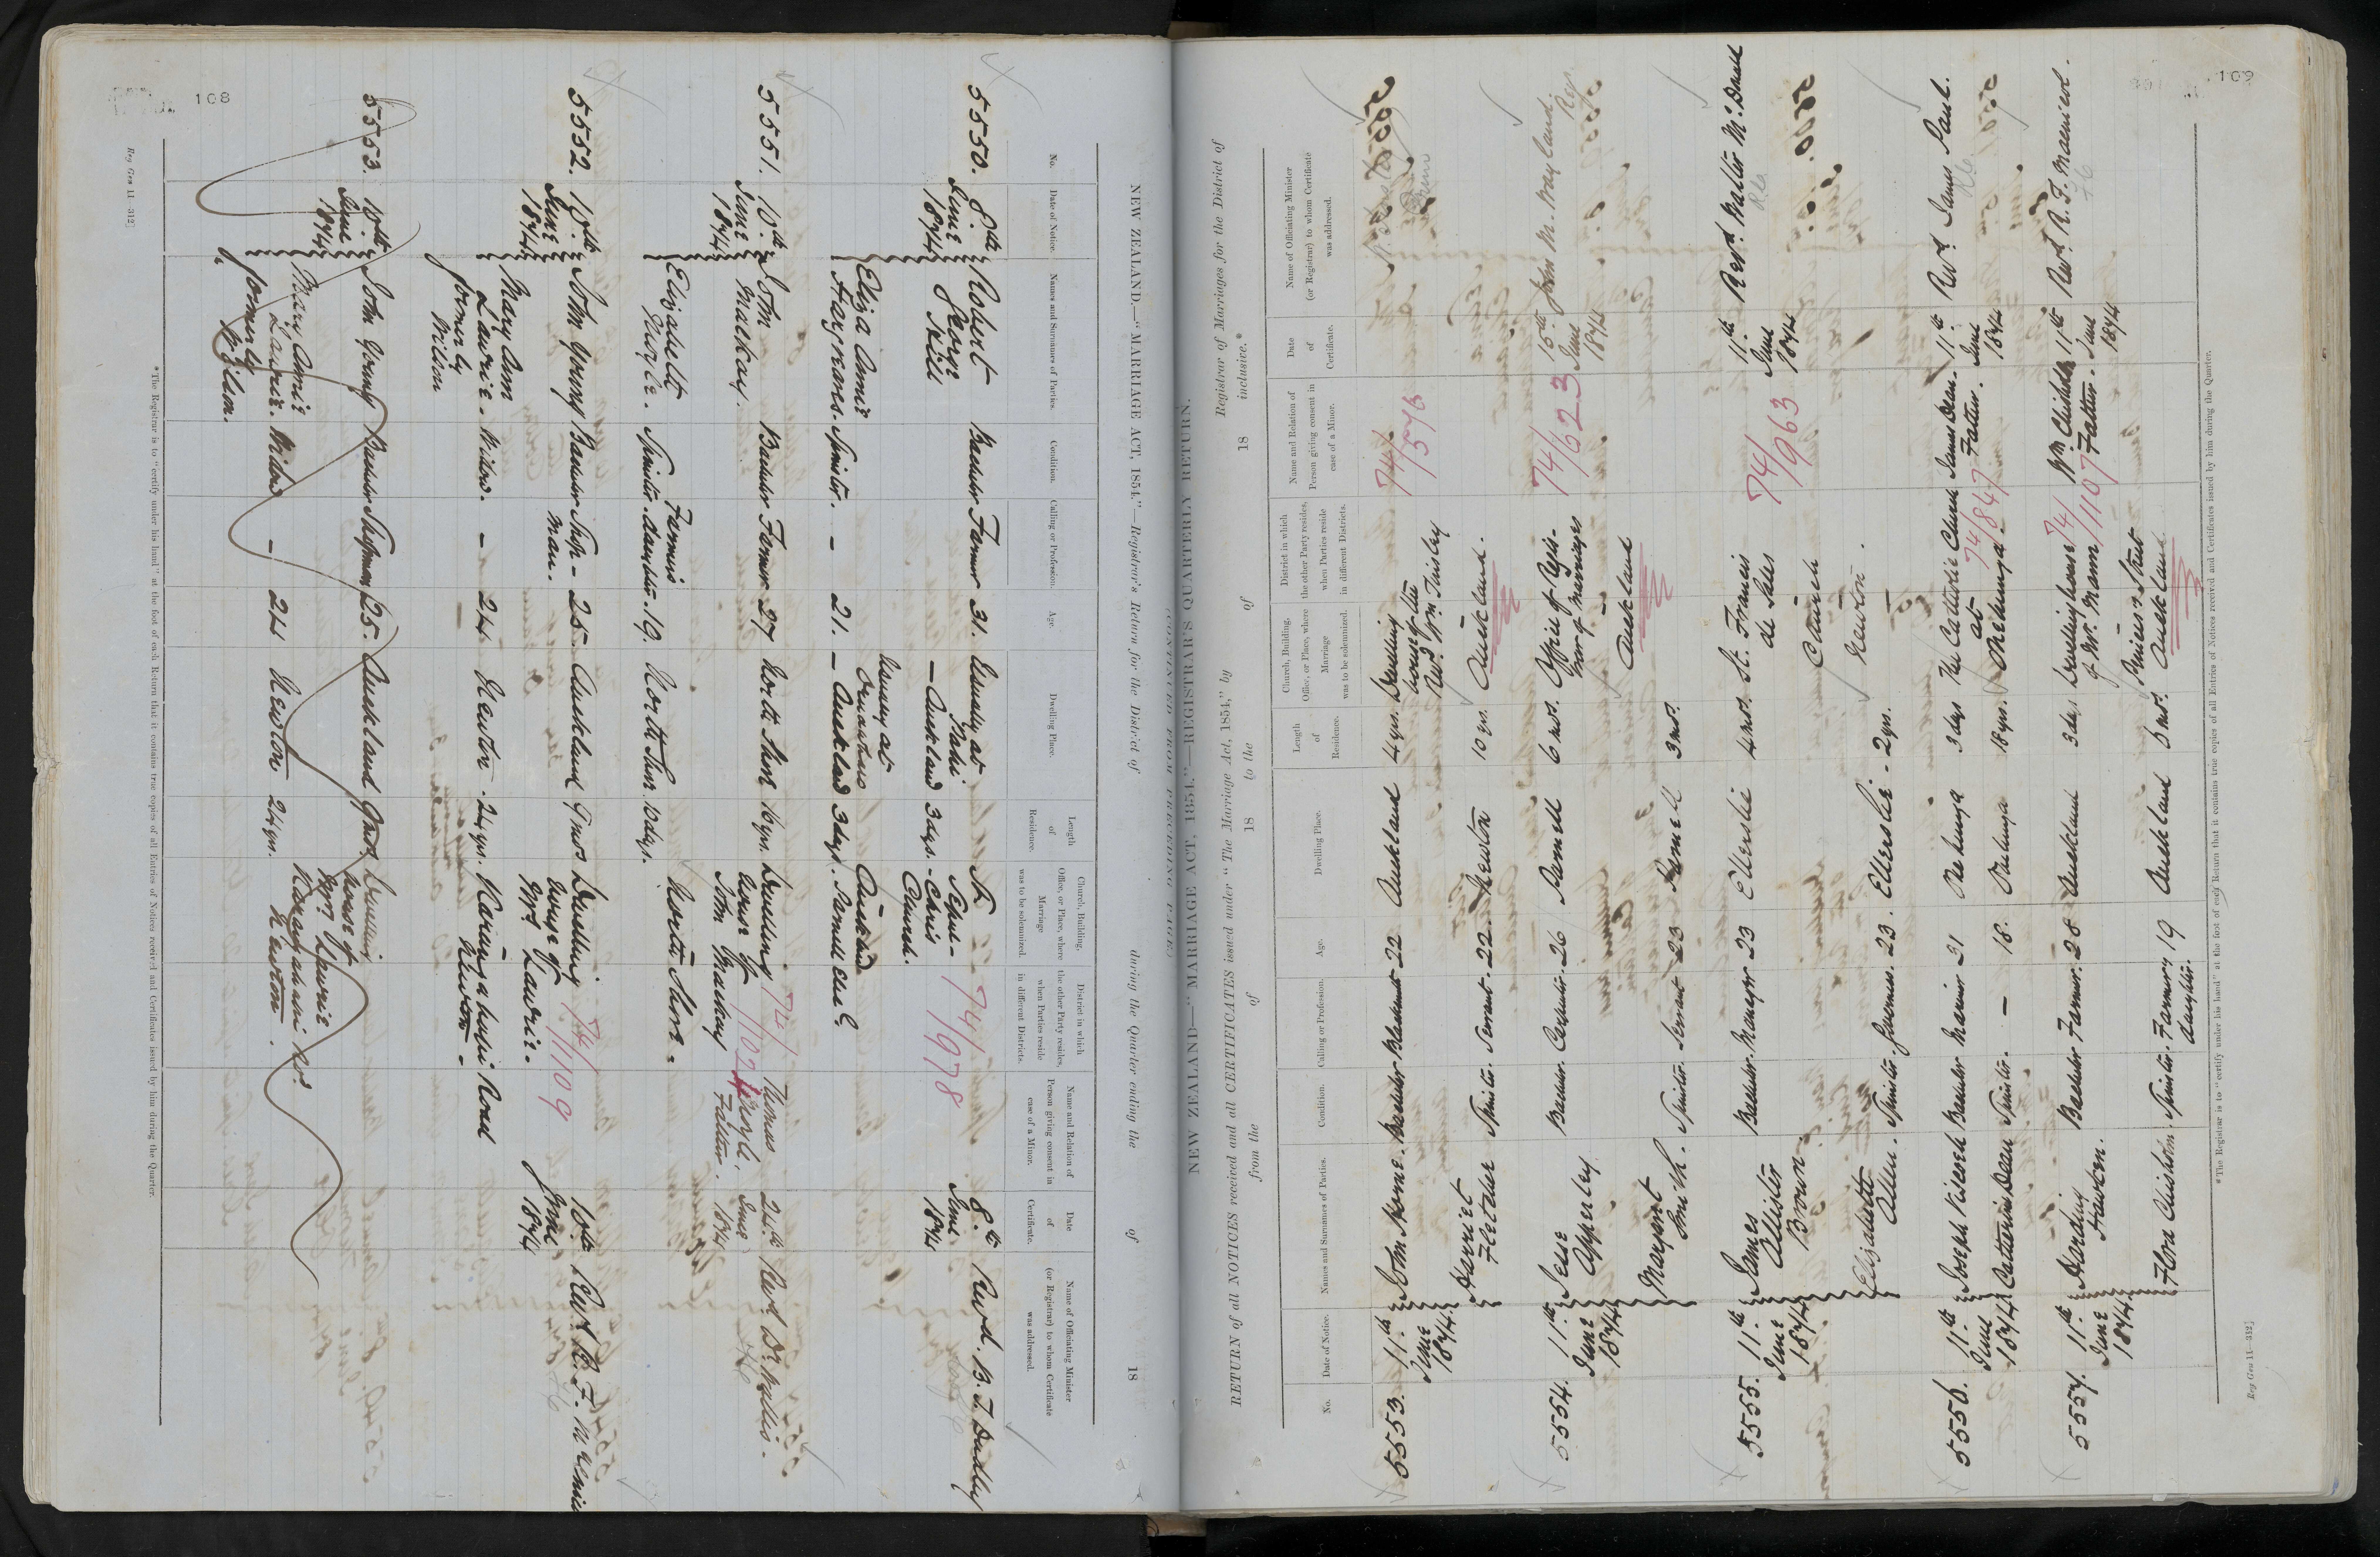 108
NEW ZEALAND.—"MARRIAGE ACT, 1854."—Registrar's Return for the District of during the Quarter ending the of 18
No.
Date of Notice.
Names and Surnames of Parties.
Condition.
Calling or Profession.
Age.
Dwelling Place.
Length of Residence.
Church, Building, Office, or Place, where Marriage was to be solemnized.
District in which the other Party resides, when Parties reside in different Districts.
Name and Relation of Person giving consent in case of a Minor.
Date of Certificate.
Name of Officiating Minister (or Registrar) to whom Certificate was addressed.
5550. 8th June 1874
Robert George Hill Bachelor Farmer 31. Usually at Mahu — Auckland 3 days. St. Sepulchre's Church. 8th June 1874 Revd. B. T. Dudley
74/978
Eliza Annie Spinster. — 21. usually at — Auckland 3 days. Auckland
5551. 10th June 1874
John Mackay. Bachelor Farmer 27 North Shore 16 yrs. Dwelling house of John Mackay Thomas Father. 24th June 1874 Revd. Dr. Wallis.
Elizabeth Spinster. Farmer's daughter. 19. North Shore. 10 days. North Shore.
5552. 10th June 1874
John Young Bachelor Ship-man. 25. Auckland 9 mos Dwelling house of Mrs. Lawrie. 10th June 1874 Revd. R. F. Macnicol
74/1109
Mary Ann Lawrie formerly Wilson Widow. — 24. Newton. 24 yrs. Karangahape Road Newton.
5553. 10th June 1874
John Young Bachelor Shipman 25. Auckland 9 mos. Dwelling house of Mrs Lawrie
Mary Annie Lawrie. formerly Wilson. Widow — 24 Newton 24 yrs. Karangahape Rd. Newton.
*The Registrar is to "certify under his hand" at the foot of each Return that it contains true copies of all Entries of Notices received and Certificates issued by him during the Quarter.
Reg Gen 11—312]
109
NEW ZEALAND—"MARRIAGE ACT, 1854."—REGISTRAR'S QUARTERLY RETURN.
(CONTINUED FROM PRECEDING PAGE.)
RETURN of all NOTICES received and all CERTIFICATES issued under "The Marriage Act, 1854," by Registrar of Marriages for the District of
from the of 18 to the of 18 inclusive.*
No.
Date of Notice.
Names and Surnames of Parties.
Condition.
Calling or Profession.
Age.
Dwelling Place.
Length of Residence.
Church, Building, Office, or Place, where Marriage was to be solemnized.
District in which the other Party resides, when Parties reside in different Districts.
Name and Relation of Person giving consent in case of a Minor.
Date of Certificate.
Name of Officiating Minister (or Registrar) to whom Certificate was addressed.
5553. 11th June 1874.
John Horne. Bachelor Blacksmith 22 Auckland 4 yrs. Dwelling house of the Revd. Wm. Tinsley
74/576
Harriet Fletcher Spinster. Servant. 22. Newton 10 yrs. Auckland.
5554. 11th June 1874
Jesse Apperley Bachelor. Carpenter. 26 Parnell 6 mos. Office of Registrar of Marriages 15th June 1874 John M. Wayland. Reg.
74/623
Margaret Smith. Spinster. Servant 23 Parnell 3 mos. Auckland
5555. 11th June 1874
James Allister Brown. Bachelor. Manager 23 Ellerslie 4 mos. St. Francis de Sales Church 11th June 1874 Revd. Walter McDonald
74/963
Elizabeth Allen. Spinster. Governess. 23. Ellerslie - 2 yrs. Newton.
5556. 11th June 1874
Joseph Bachelor Mariner 21 Onehunga 3 days The Catholic Church at Onehunga James Dean. Father. 11th June 1874 Revd. James Paul.
74/847
Catherine Dean Spinster. — 18. Onehunga 18 yrs.
5557. 11th June 1874.
Harding Hawken. Bachelor Farmer. 28 Auckland 3 days Dwelling house of Mr. Mann Wm. Chisholm Father. 11th June 1874 Revd. R. F. Macnicol.
74/1107
Flora Chisholm. Spinster. Farmer's daughter. 19 Auckland 6 mos. Princes Street Auckland
*The Registrar is to "certify under his hand" at the foot of each Return that it contains true copies of all Entries of Notices received and Certificates issued by him during the Quarter.
Reg Gen 11—312]